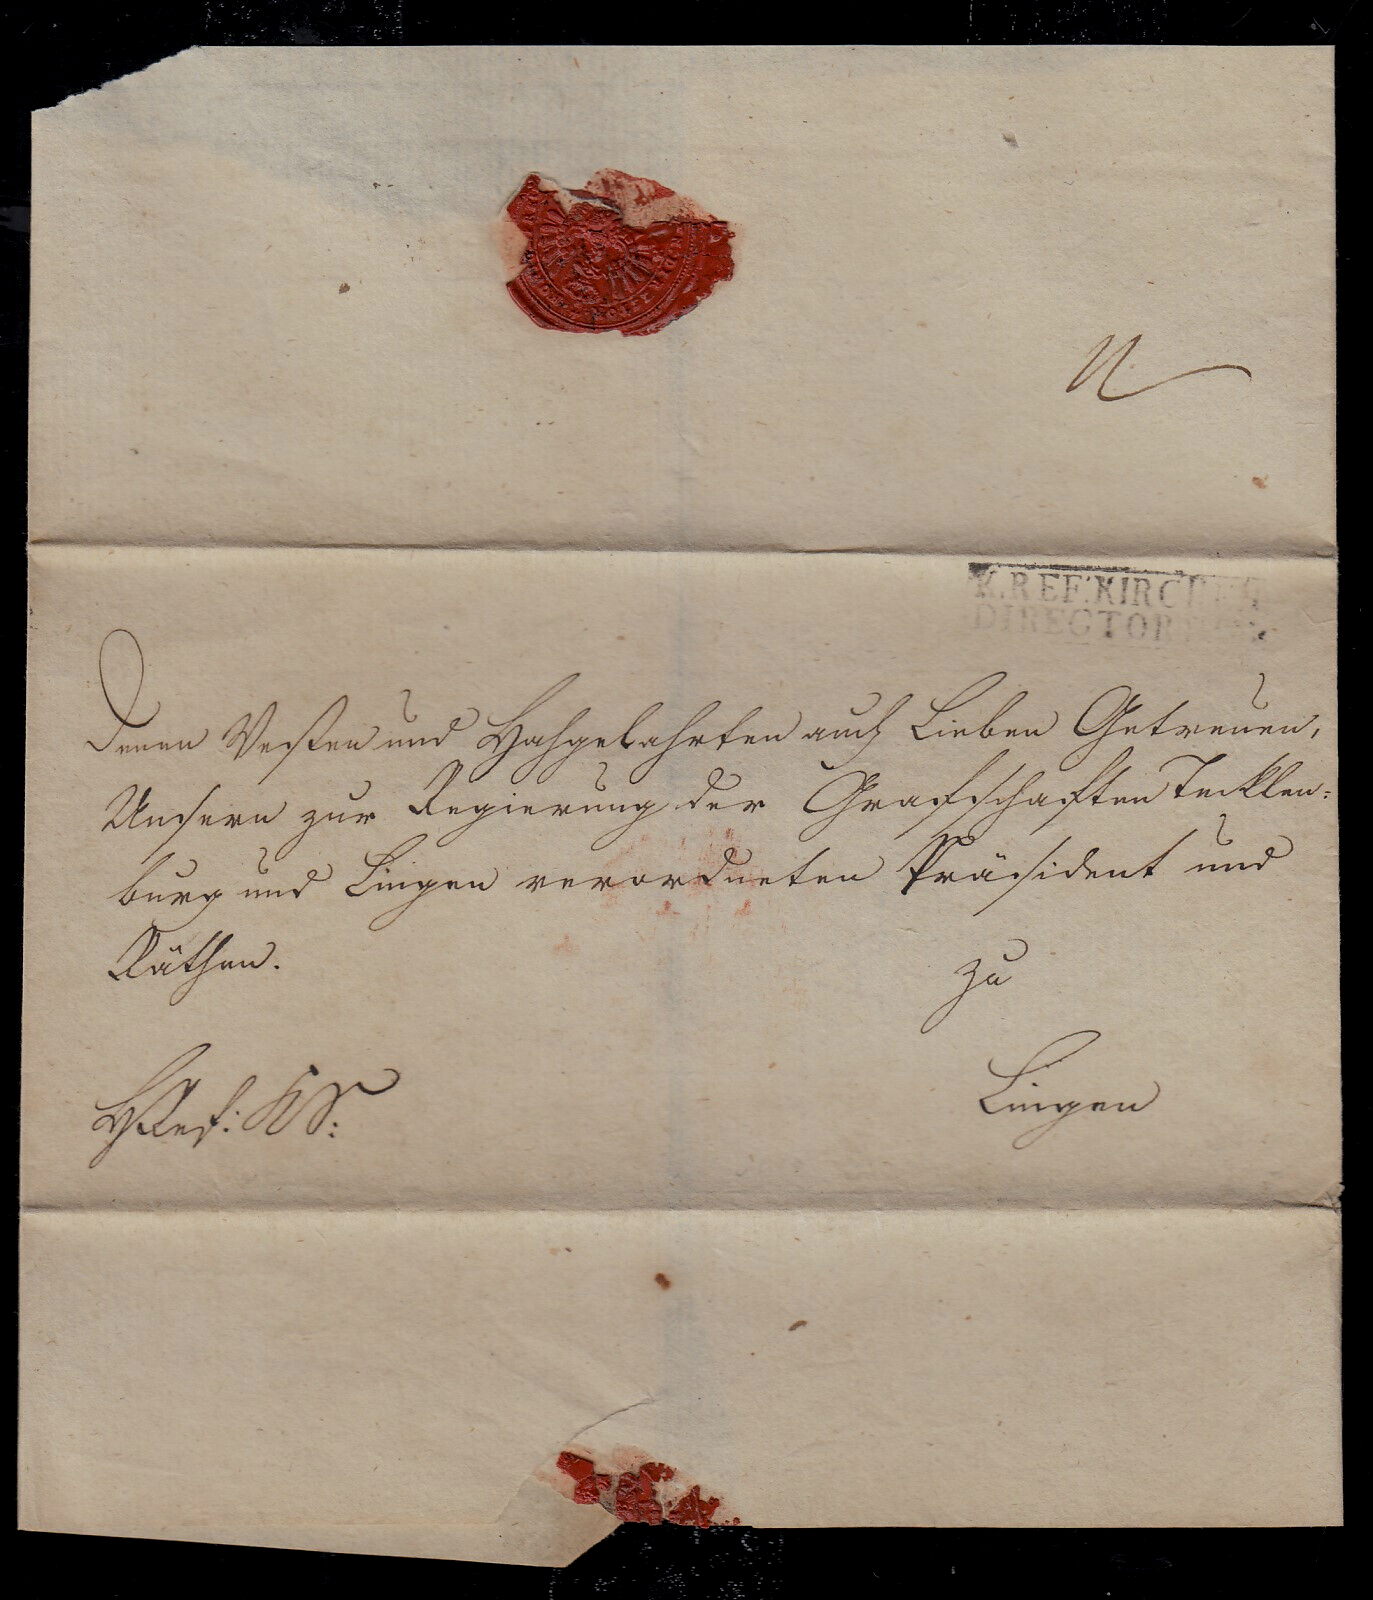 K. REF: KIRCHEN
DIRECTOR
Denen Vesten und Hochgelahrten auch Lieben Getreuen,
Unsern zur Regierung der Grafschaften Tecklen:
burg und Lingen verordneten Präsident und
Räthen.
zu
Lingen